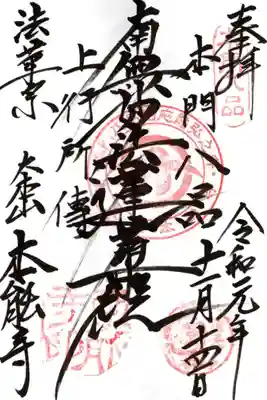 奉拝
令和元年
十一月十四日
本門八品
南無妙法蓮華経
上行所傳
法華宗
大本山 本能寺